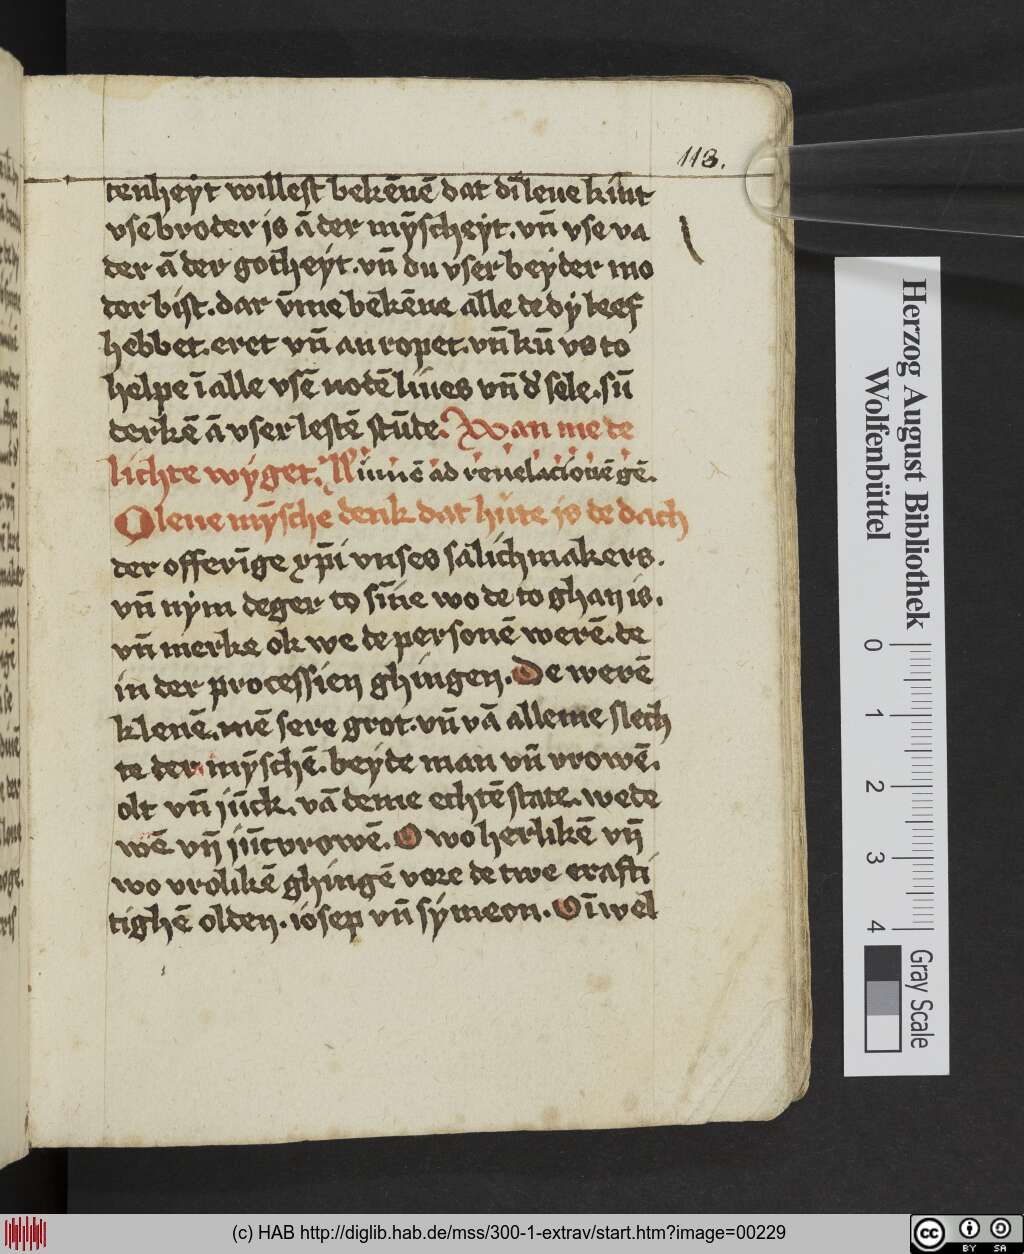 113.
tenheyt willest bekēnē dat dī leue kint
vse broder is ā der mȳscheyt. vn̄ vse va
der ā der gotheyt. vn̄ du vser beyder mo
der bist. dar v̄me bekēne alle de dy leef
hebbet. eret vn̄ an ropet. vn̄ kū vs to
helpe ī alle vsē notē liues vn̄ d' sele. sū
derkē ā vser lestē stūde. Wan me de
lichte wyget. Lumē ad reuelacionē gē.
O leue mȳsche denk dat hute is de dach
der offerīge xp̄i vnses salichmakers.
vn̄ nym deger to sīne wo de to ghan is.
vn̄ merke ok we de personē werē. de
in der processien ghingen. De werē
klenē. mē sere grot. vn̄ vā alleme slech
te der mȳschē. beyde man vn̄ vrowē.
olt vn̄ jūck. vā deme echtē state. wede
wē vn̄ jūcvrowē. O wo herlikē vn̄
wo vrolikē ghingē vore de twe erafti
tighē olden. iosep vn̄ symeon. O ī wel
Herzog August Bibliothek
Wolfenbüttel
0 1 2 3 4
Gray Scale
(c) HAB http://diglib.hab.de/mss/300-1-extrav/start.htm?image=00229
cc BY SA